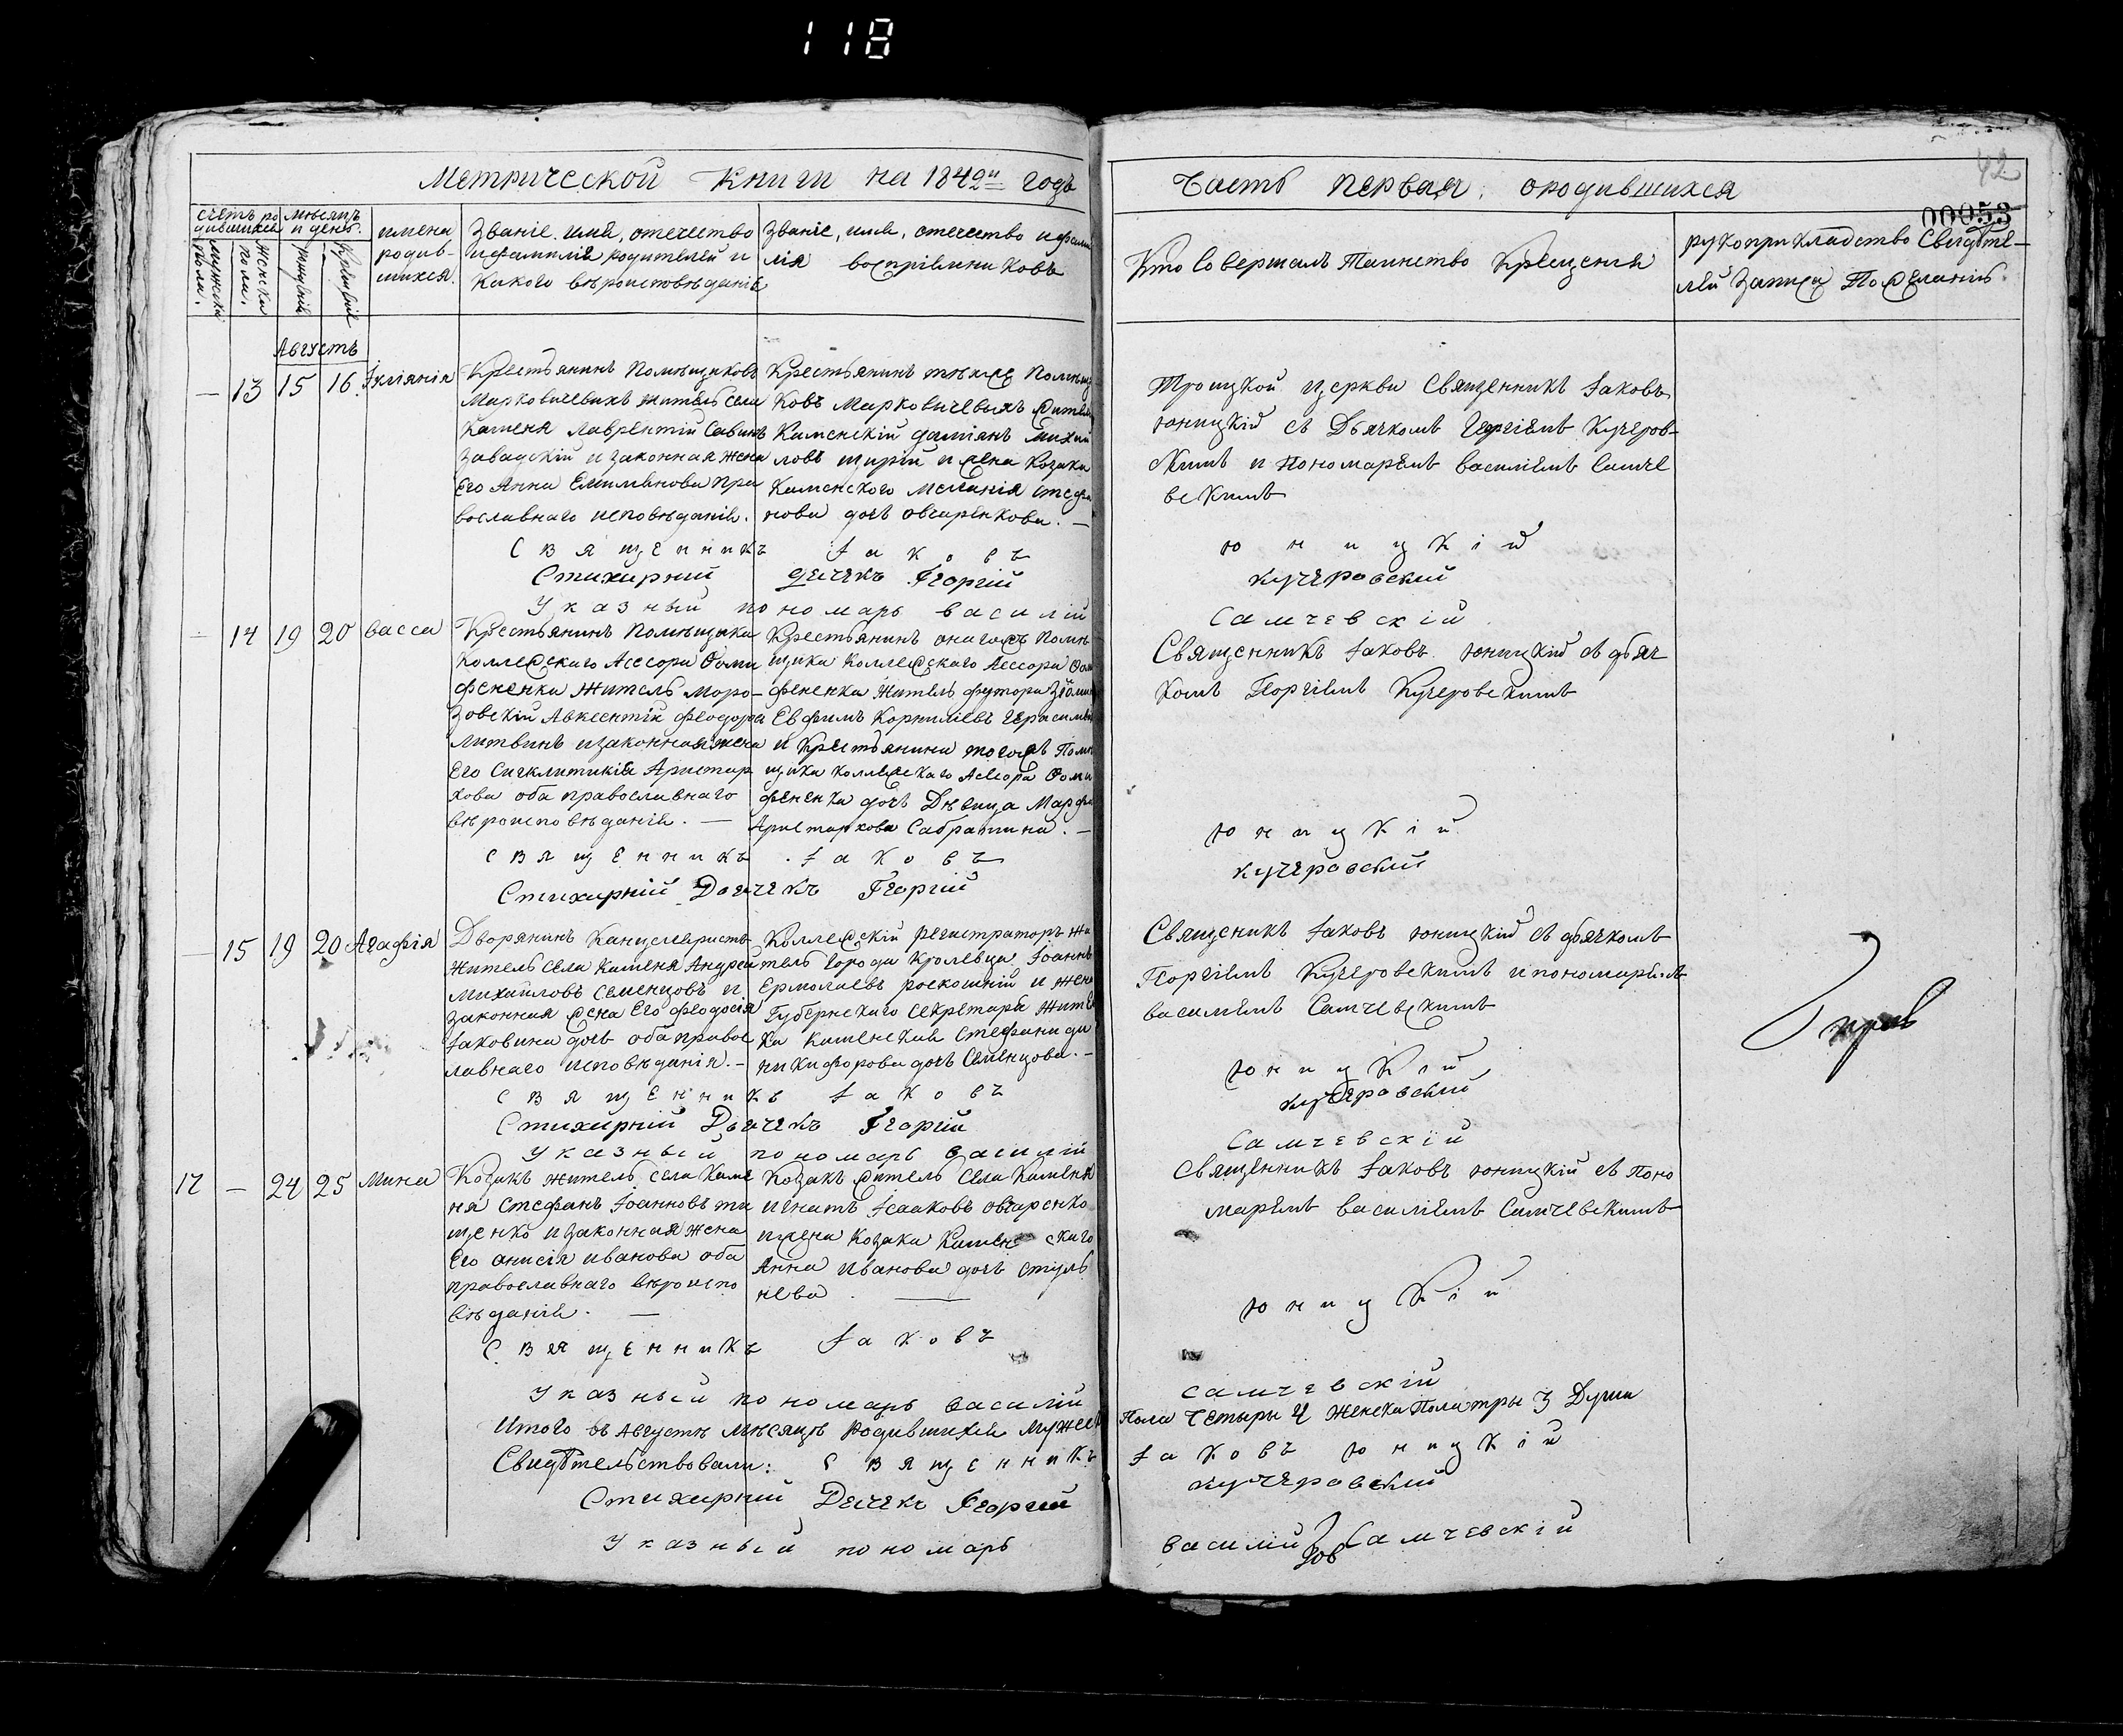 118
42
00053
Метрической Книги на 1842й годъ
Часть Первая. ородившихся
счетъ ро
дившихся
мѣсяцъ
и день.
имена
родив-
шихся.
Званіе имя, отечество
и фамилія родителей и
какого вѣроисповѣданія
Званіе, имя, отечество и фами
лія воспріемниковъ
Кто Совершалъ Таинство Крещенія
рукоприкладство Свидѣте-
лей записа По желанію.
Августъ
— 13 15 16 Іуліанія
Крестьянинъ Помѣщиковъ
Марковичевыхъ житель села
Каменя Лаврентій Савинъ
Завадскій и законная жена
его Анна Емиліянова пра
вославнаго исповѣданія.
Крестьянинъ тѣхже Помѣщи
ковъ Марковичевыхъ жител
Каменскій даміянъ михай
ловъ щирій и жена Козака
Каменского Меланія стефа
нова дочь овчаренкова. —
Троицкой церкви Священникъ Іаковъ
юницкій съ Дьячкомъ Георгіемъ Кучеров-
скимъ и Пономаремъ василіемъ Самче
вскимъ
Священникъ Іаковъ юницкій
Стихирний дьячекъ Георгій кучеровский
Указный пономарь василій Самчевскій
— 14 19 20 васса
Крестьянинъ Помѣщика
Коллежскаго Асессора Фоми
фененка житель Моро-
зовскій Авксентій феодора
Литвинъ изаконная жена
Его Сигклитикія Аристар
хова оба православнаго
вѣроисповѣданія. —
Крестьянинъ оногожъ помѣ
щика Коллежскаго Асессора Фом
фененка житель футора
Евфимъ Корниліевъ Герасим
и Крестьянина тогожъ Помѣ
щика Коллежскаго Асессора Фоми
фененка дочь Дѣвица Марфа
Аристархова Сабратина. —
Священникъ Іаковъ юницкій съ дьяч
комъ Георгіемъ Кучеровскимъ
Священникъ Іаковъ юницкій
Стихирній Дьячекъ Георгій кучеровский
— 15 19 20 Агафія
Дворянинъ Канцеляристъ
житель села Каменя Андрей
Михайловъ Семенцовъ и
законная жена Его феодосія
Іаковина дочь оба правос
лавнаго исповѣданія. —
Коллежскій регистраторъ жи
тель города Кролевца Іоаннъ
Ермолаевъ роскошній и жена
Губернскаго Секретаря жите
ка Каменская Стефанида
никифорова дочь Семенцова. —
Священникъ Іаковъ юницкій съ дьячкомъ
Георгіемъ Кучеровскимъ и пономаремъ
василіемъ Самчевскимъ
Священникъ Іаковъ юницкій
Стихирній Дьячекъ Георгій кучеровский
Указный пономарь василій Самчевскій
17 — 24 25 Мина
Козакъ житель села Каме
ня Стефанъ Іоанновъ ти
щенко и законная жена
Его анисія иванова оба
православнаго вѣроиспо
вѣданія. —
Козакъ житель села Каменя
игнатъ Ісааковъ овчаренко
ижена Козака Каменскаго
Анна Иванова дочь
Священникъ Іаковъ юницкій съ Поно
маремъ василіемъ Самчевскимъ
Священникъ Іаковъ юницкій
Указный пономарь василій самчевскій
Итого въ Августѣ мѣсяцѣ родившихся Мужес Пола Четыри 4 женска Пола три 3 Души
Свидѣтельствовали: Священникъ Іаковъ юницкій
Стихирний Дьячекъ Георгій кучеровский
Указный пономарь василий Самчевскій